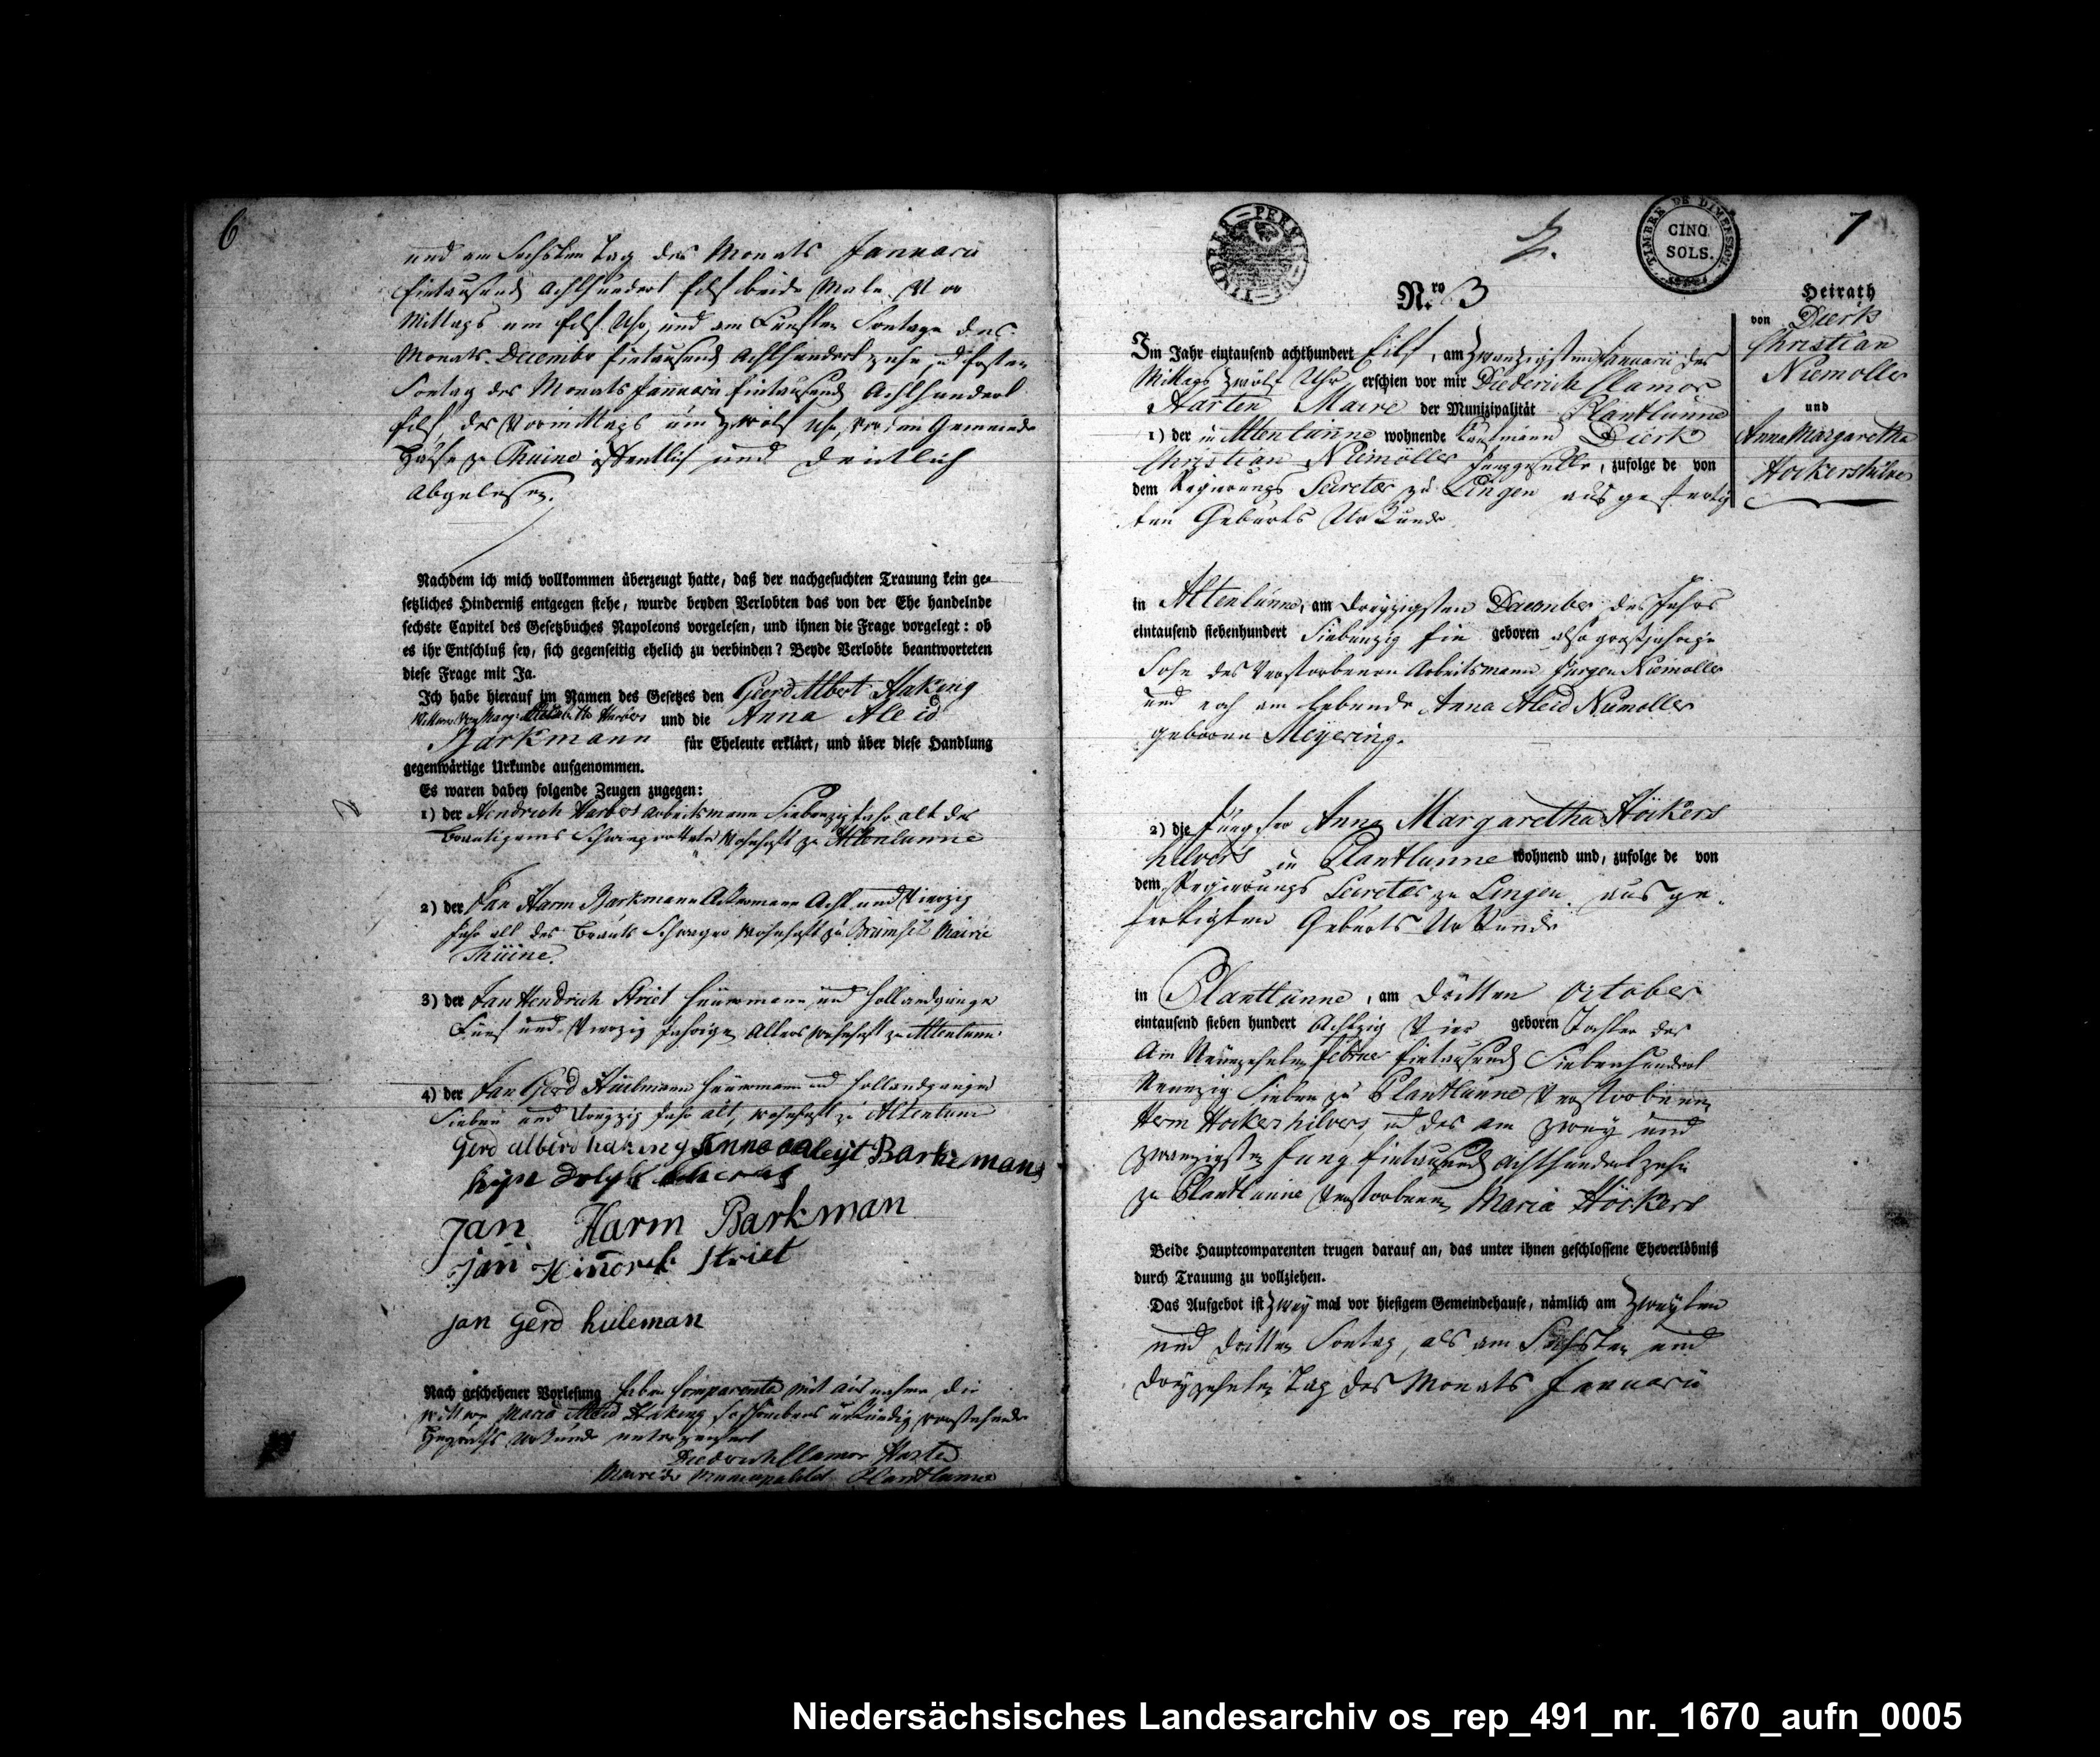 6
und am Sechsten Tag des Monats Januarii
Eintausend Achthundert Eilf beide Male Vor
Mittags um Eilf Uhr, und am Funften Sontage des
Monats Decembr Eintausend Achthundert zehn, und Ersten
Sontag des Monats Januarii Eintausend Achthundert
Eilf, des Vormittags um zwölf Uhr, vor dem Gemeinde
Hause zu Thuine öffentlich und deutlich
abgelesen.
Nachdem ich mich vollkommen überzeugt hatte, daß der nachgesuchten Trauung kein ge-
setzliches Hinderniß entgegen stehe, wurde beyden Verlobten das von der Ehe handelnde
sechste Capitel des Gesetzbuches Napoleons vorgelesen, und ihnen die Frage vorgelegt: ob
es ihr Entschluß sey, sich gegenseitig ehelich zu verbinden? Beyde Verlobte beantworteten
diese Frage mit Ja.
Ich habe hierauf im Namen des Gesetzes den Geerd Albert Haking
Wittwer von Marg. Elisabetha Harbers und die Anna Aleid
Barkmann für Eheleute erklärt, und über diese Handlung
gegenwärtige Urkunde aufgenommen.
Es waren dabey folgende Zeugen zugegen:
1) der Hendrich Harbers Arbeitsmann Siebenzig Jahr alt des
Brautigams wohnhaft zu Altenlunne
2) der Jan Harm Barkmann Ackermann Acht und Vierzig
Jahr alt der Brauts Schwager wohnhaft zu Mairie
Thuine.
3) der Jan Hendrich Striet Heuermann und Hollandganger
Funf und Vierzig Jahrigen Alters wohnhaft zu Altenlunne
4) der Jan Gerd Hülmann Heuermann und Hollandganger
Sieben und Dreyzig Jahr alt, wohnhaft zu Altenlunne
Gerd albert haking Anna aleijt Barkemans
Jan Harm Barkman
Jan Hinderk Striet
Jan Gerd hüleman
Nach geschehener Vorlesung haben Comparenten mit ausnahme die
Wittwe Maria Aleid Haking Schreibens unkundig vorstehende
Heyraths Urkunde unterzeichnet
Diedrich Clamor Harten
Maire der Municipalitet Plantlunne
TIMBRE DE DIMENSION
CINQ
SOLS.
7
2.
N.ro 3
Heirath
von Dierk
Christian
Niemoller
und
Anna Margaretha
Hockershilvers
Im Jahr eintausend achthundert Eilf, am zwanzigsten Januarii des
Mittags zwölf Uhr erschien vor mir Diederich Clamor
Harten Maire der Munizipalität Plantlünne
1) der in Altenlünne wohnende Kaufmann Dierk
Christian Niemöller Junggeselle, zufolge de von
dem Regierungs Secretär zu Lingen ausgefertig
ten Geburts Urkunde
in Altenlünne, am dreyzigsten December des Jahrs
eintausend siebenhundert Siebenzig Ein geboren also grossjahrige
Sohn des Verstorbenen Arbeitsmann Jurgen Niemoller
und noch am Lebende Anna Aleid Niemoller
geborne Meyering.
2) die Jungfer Anna Margaretha Höckers
hilvers in Plantlunne wohnend und, zufolge de von
dem Regierungs Secretär zu Lingen ausge-
fertigten Geburts Urkunde
in Plantlünne, am dritten October
eintausend sieben hundert Achtzig Vier geboren Tochter des
Am Neunzehnten Februar Eintausend Siebenhundert
Neunzig Sieben zu Plantlünne Verstorbenen
Herm Hockershilvers, und des am zwey und
zwanzigsten Juny Eintausend Achthundert zehn
zu Plantlünne Verstorbenen Maria Höckers
Beide Hauptcomparenten trugen darauf an, das unter ihnen geschlossene Eheverlöbniß
durch Trauung zu vollziehen.
Das Aufgebot ist zwey mal vor hiesigem Gemeindehause, nämlich am zweyten
und dritten Sontag, als am Sechsten und
dreyzehnten Tag des Monats Januarii
Niedersächsisches Landesarchiv os_rep_491_nr._1670_aufn_0005